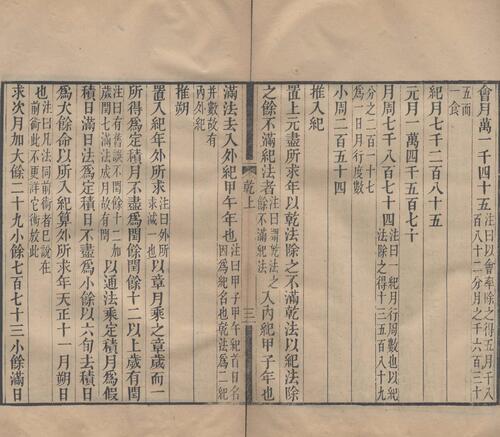 會月一萬一千四十五注曰以會率除之得五月千八百八十二分月之千六百三十
五而一食
紀月七千二百八十五
元月一萬四千五百七十
月周七千八百七十四注曰紀月行周數也以紀法除之得十三五百八十九
分之二百一十七為一日月行度數
小周二百五十四
推入紀
置上元盡所求年以乾法除之不滿乾法以紀法除
之餘不滿紀法者注曰謂乾法之餘不滿紀法入內紀甲子年也
乾上 三
滿法去入外紀甲午年也注曰甲子甲午紀首日名因為紀名也乾法為二紀
并數故有內外紀
推朔
置入紀年外所求注曰外所求減一也以章月乘之章歲而一
所得為定積月不盡為閏餘閏餘十二以上歲有閏
注曰有舊誤不閏餘十二加歲閏七成滿章月故有閏以通法乘定積月為假
積日滿日法為定積日不盡為小餘以六旬去積日
為大餘命以所入紀算外所求年天正十一月朔日
也注曰凡法同前術者已說在前術此不更詳它術放此
求次月加大餘二十九小餘七百七十三小餘滿日